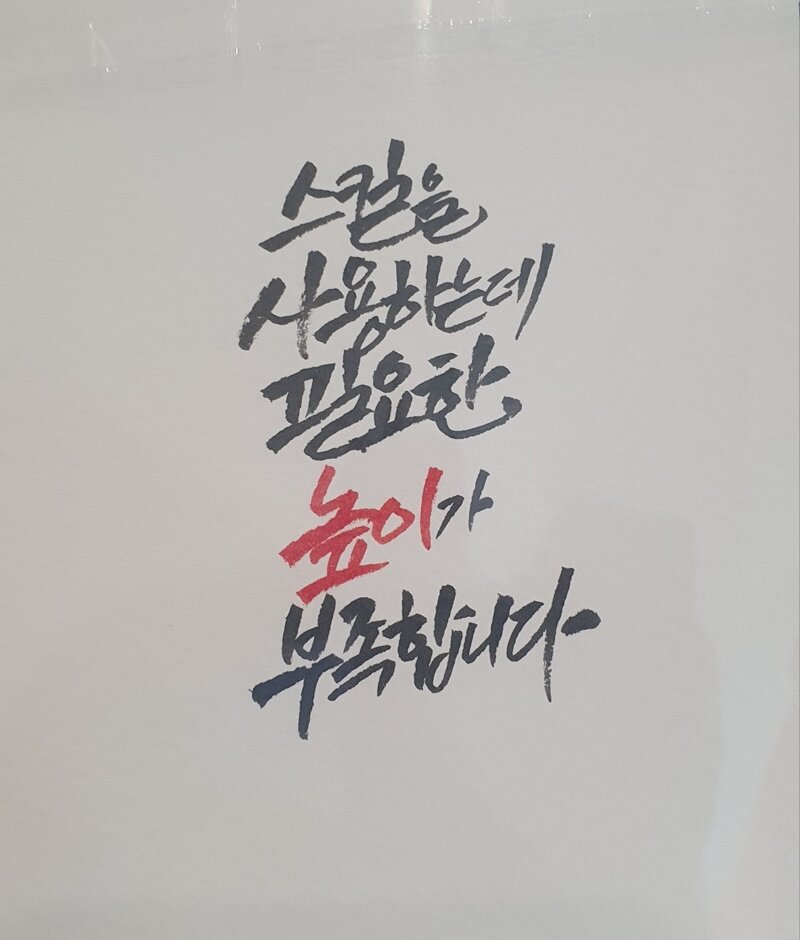 스킬을
사용하는데
필요한
높이가
부족합니다